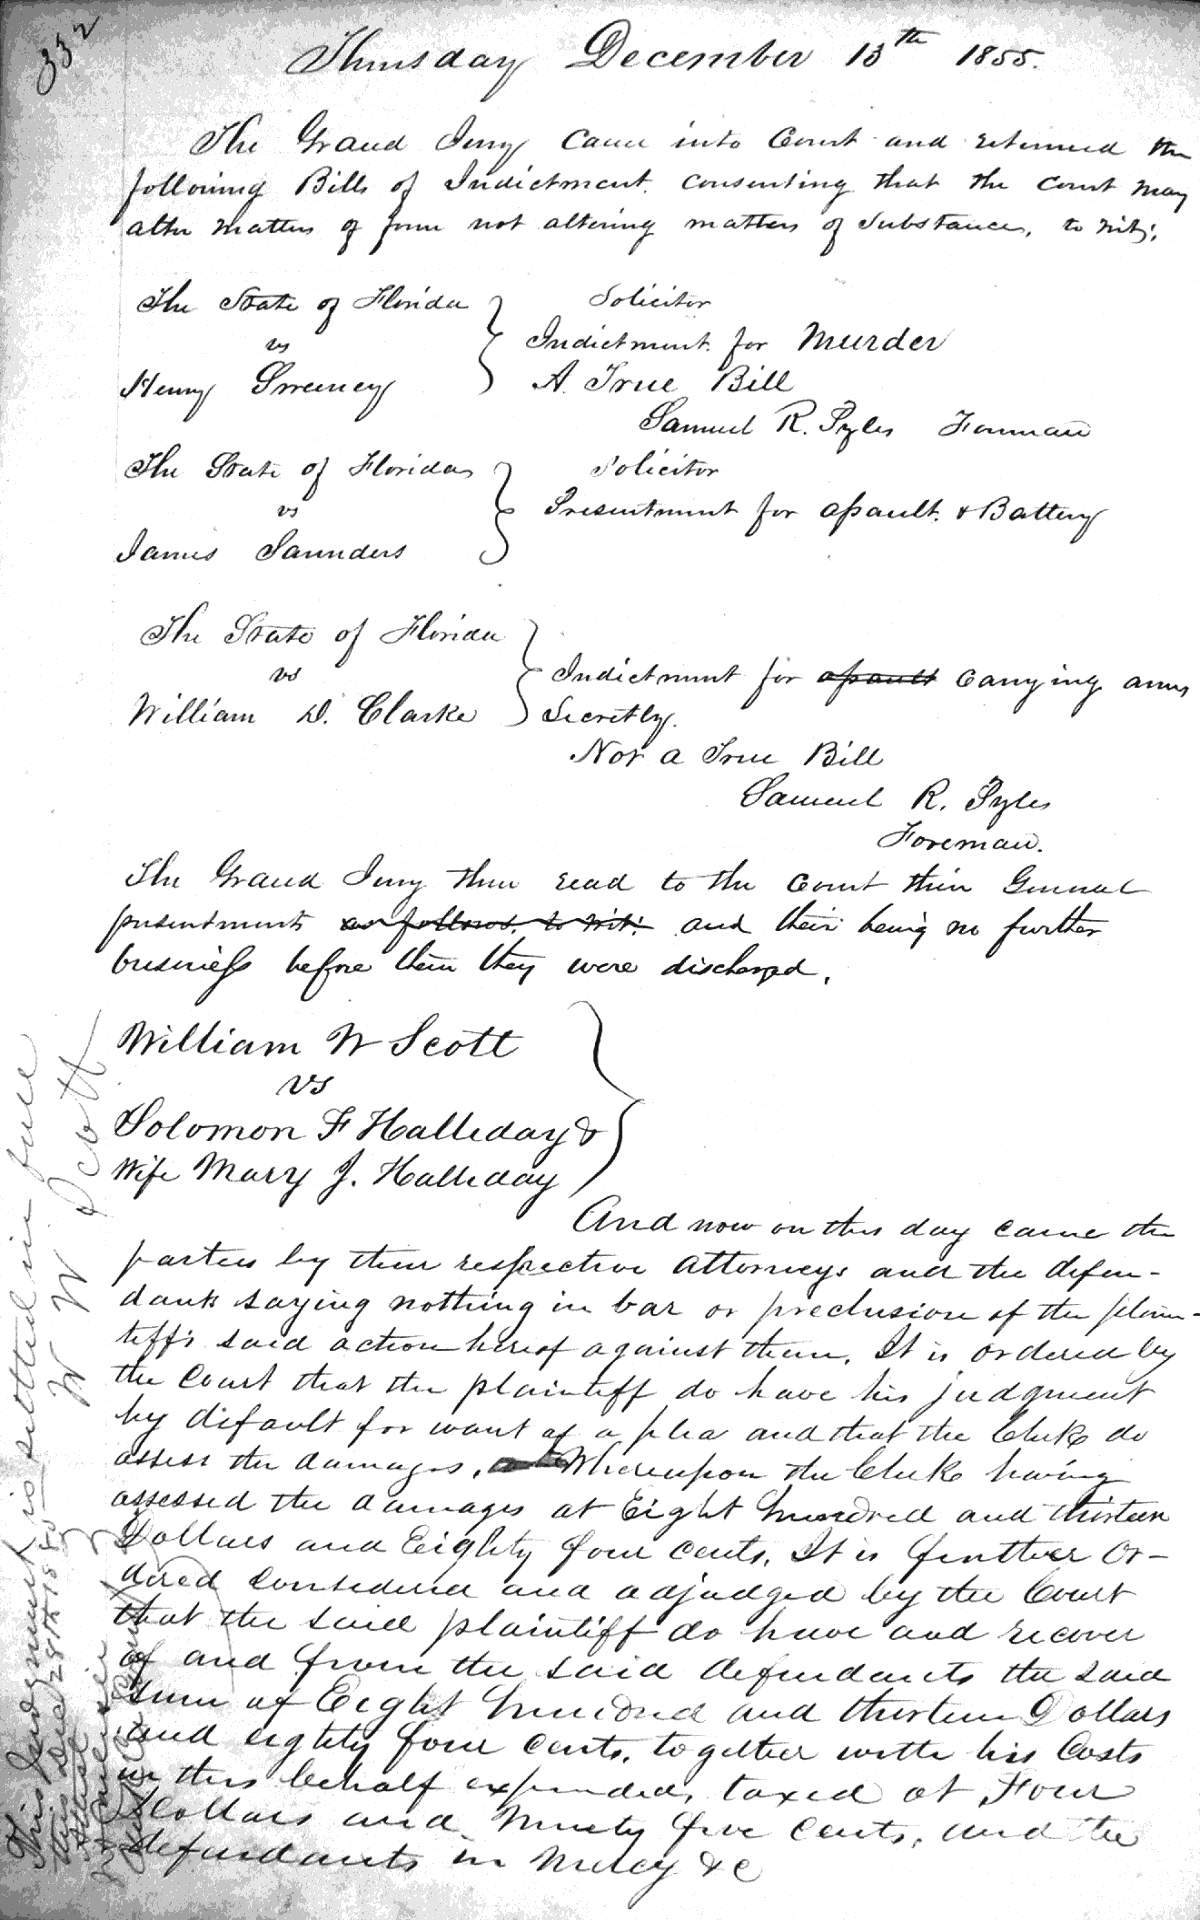 332
Thursday December 13th 1855.
The Grand Jury Came into Court and returned the
following Bills of Indictment. consenting that the Court may
alter matters of form not altering matters of substance, to wit;
The State of Florida
vs
Henry Sweeney
Solicitor
Indictment for Murder
A True Bill
Samuel R. Pyles Forman
The State of Florida
vs
James Saunders
Solicitor
Presentment for assault & Battery
The State of Florida
vs
William D. Clarke
Indictment for assault Carrying arms
Secretly.
Not a True Bill
Samuel R. Pyles
Foreman.
The Grand Jury then read to the Court their General
presentments as follows, to wit: and their being no further
business before them they were discharged,
William W Scott
vs
Solomon F Halliday &
Wife Mary J. Halliday
And now on this day came the
parties by their respective attorneys and the defen-
dants saying nothing in bar or preclusion of the plain-
tiff's said action hereof against them, It is ordered by
the Court that the plaintiff do have his judgment
by difault for want of a plea and that the Clerk do
assess the damages, Whereupon the Clerk having
assessed the damages at Eight hundred and thirteen
Dollars and Eighty four cents, It is further Or-
dered considered and adjudged by the Court
that the said plaintiff do have and recover
of and from the said defendants the said
sum of Eight hundred and thirteen Dollars
and eighty four cents, together with his Costs
in this behalf expended, taxed at Four
Dollars and Ninety five cents, and the
defendants in Mercy &c
This Judgment is settled in full
this 28th 1857
W W Scott